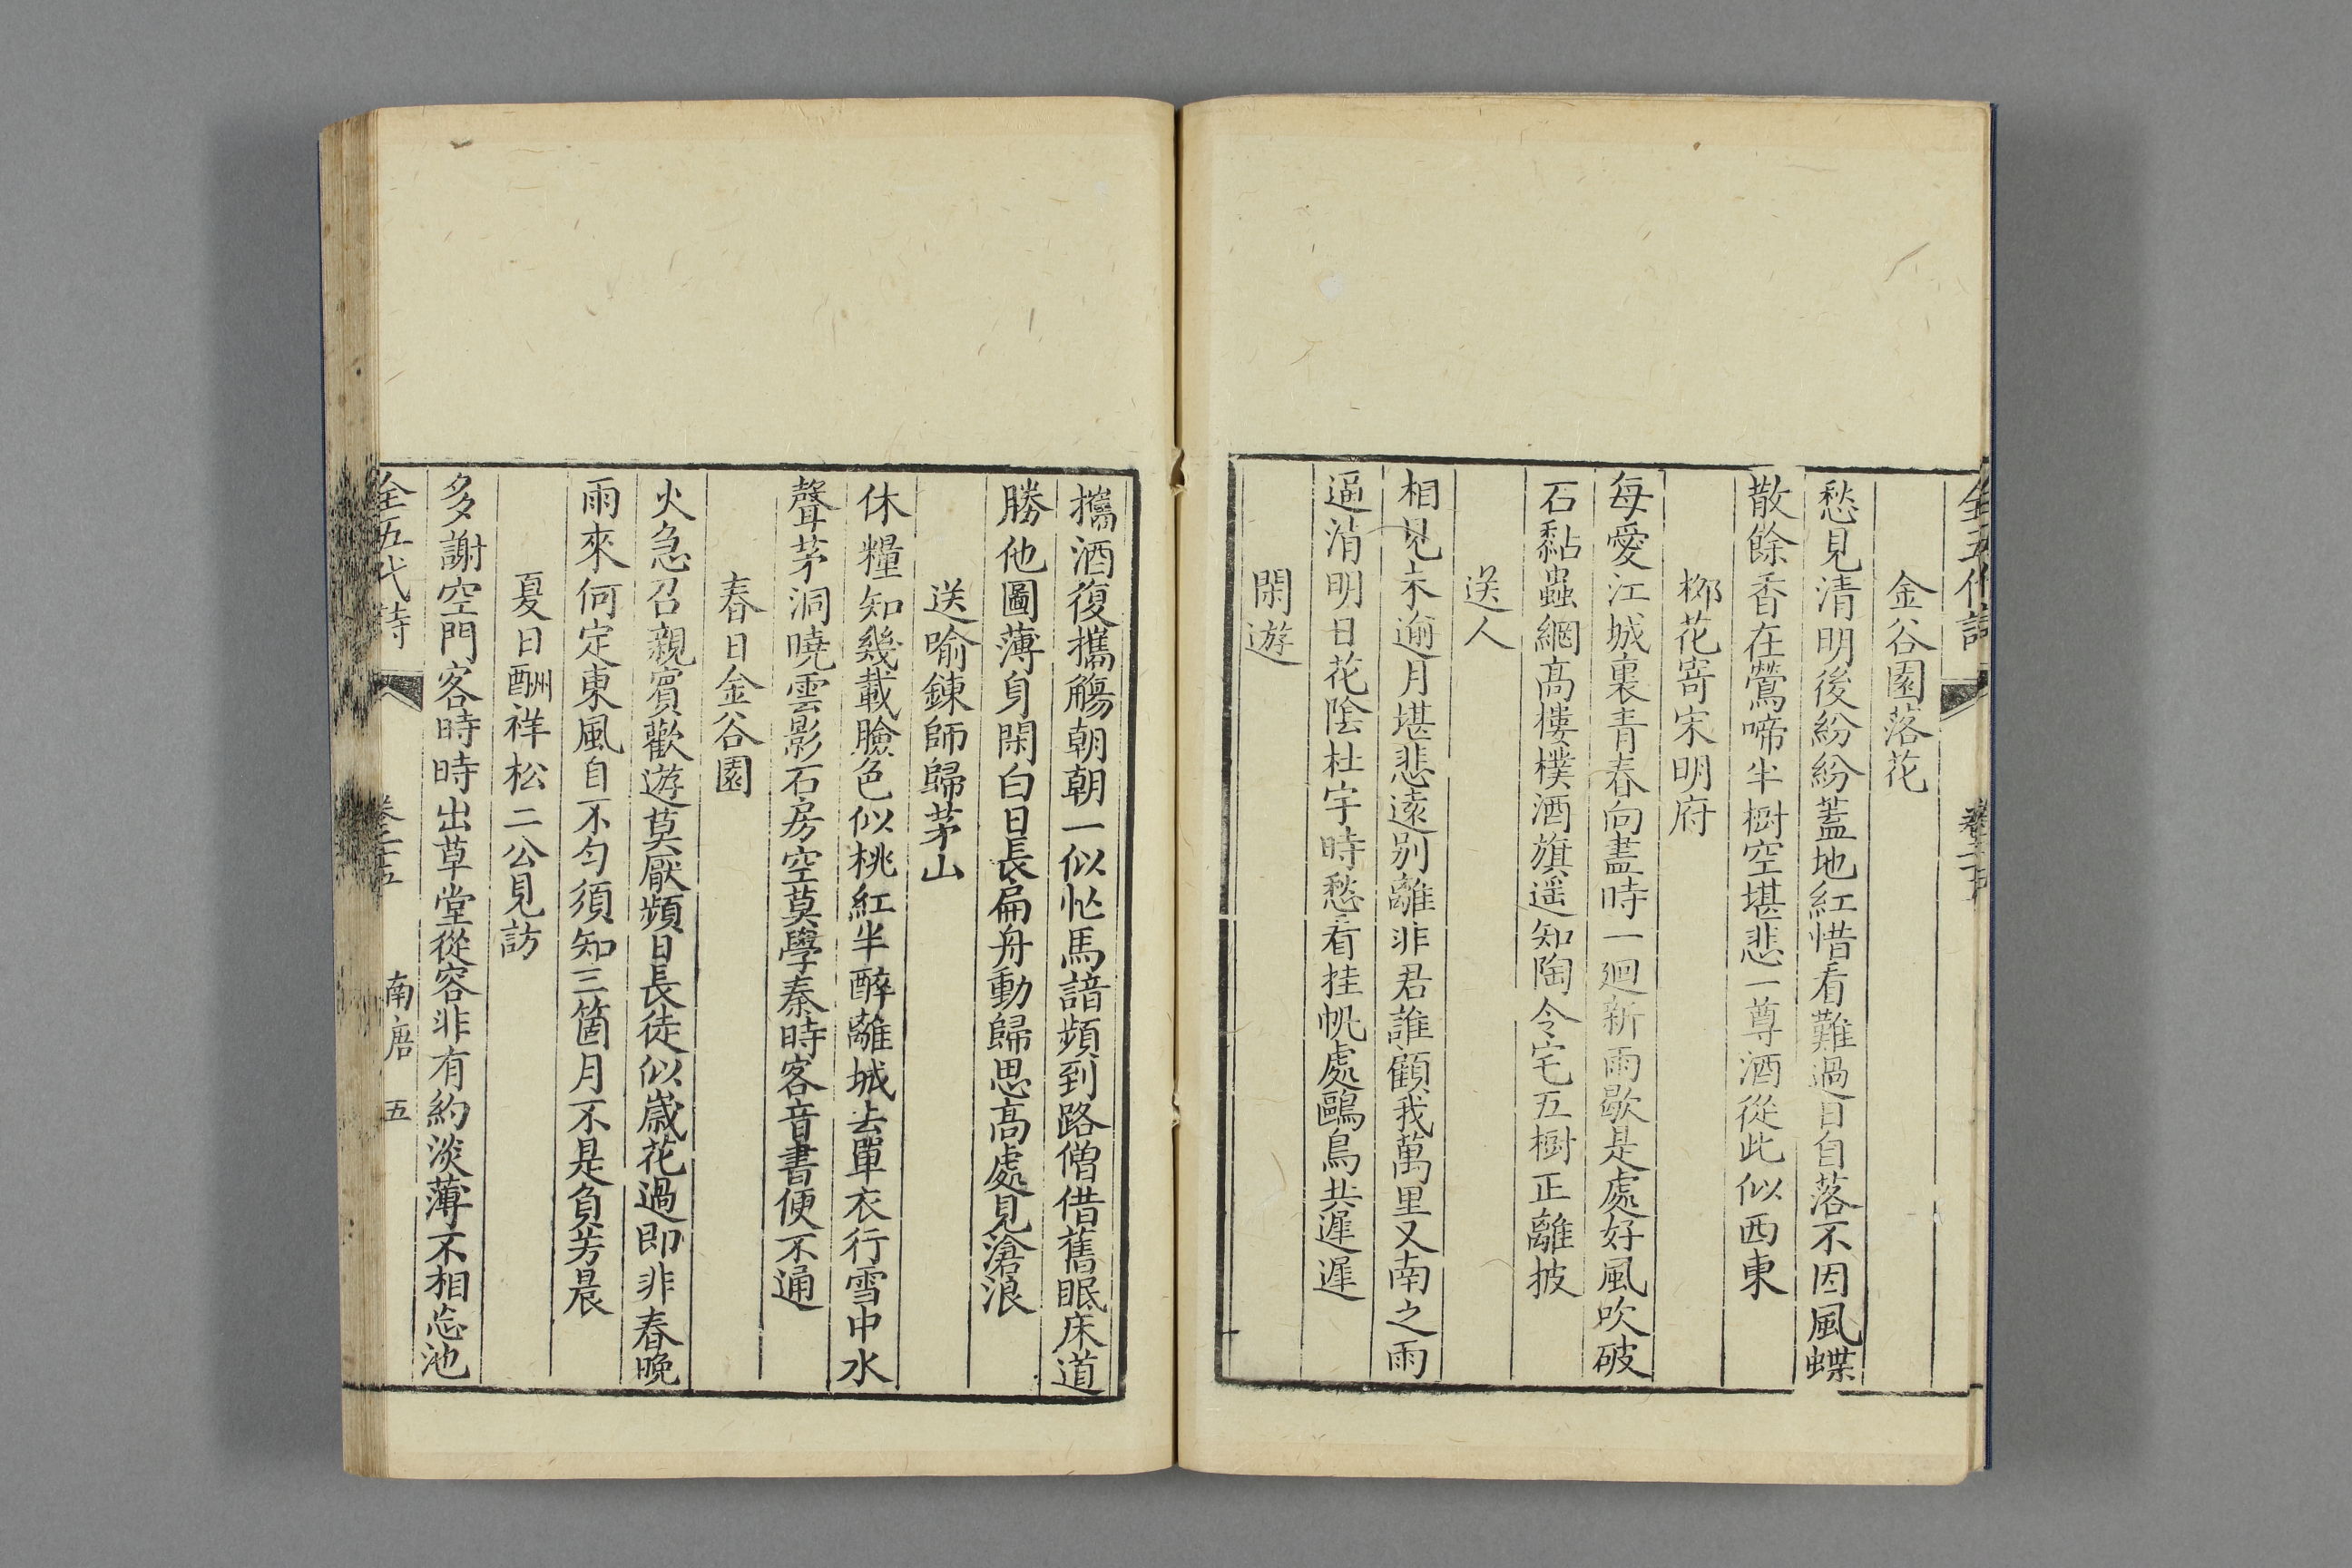 全五代詩
金谷園落花
愁見清明後紛紛蓋地紅惜看難過日自落不因風蝶
散餘香在鶯啼半樹空堪悲一尊酒從此似西東
柳花寄宋明府
每愛江城裏青春向盡時一迴新雨歇是處好風吹破
石黏蟲網高樓撲酒旗遥知陶令宅五樹正離披
送人
相見未逾月堪悲遠别離非君誰顧我萬里又南之雨
逼清明日花陰杜宇時愁看挂帆處鷗鳥共遲遲
閑遊
攜酒復攜觴朝朝一似忙馬諳頻到路僧借舊眠床道
勝他圖薄身閑白日長扁舟動歸思高處見滄浪
送喻鍊師歸茅山
休糧知幾載臉色似桃紅半醉離城去單衣行雪中水
聲茅洞曉雲影石房空莫學秦時客音書便不通
春日金谷園
火急召親賓歡遊莫厭頻日長徒似歲花過即非春晚
雨來何定東風自不勻須知三箇月不是負芳晨
夏日酬祥松二公見訪
多謝空門客時時出草堂從容非有約淡薄不相忘池
全五代詩 南唐 五